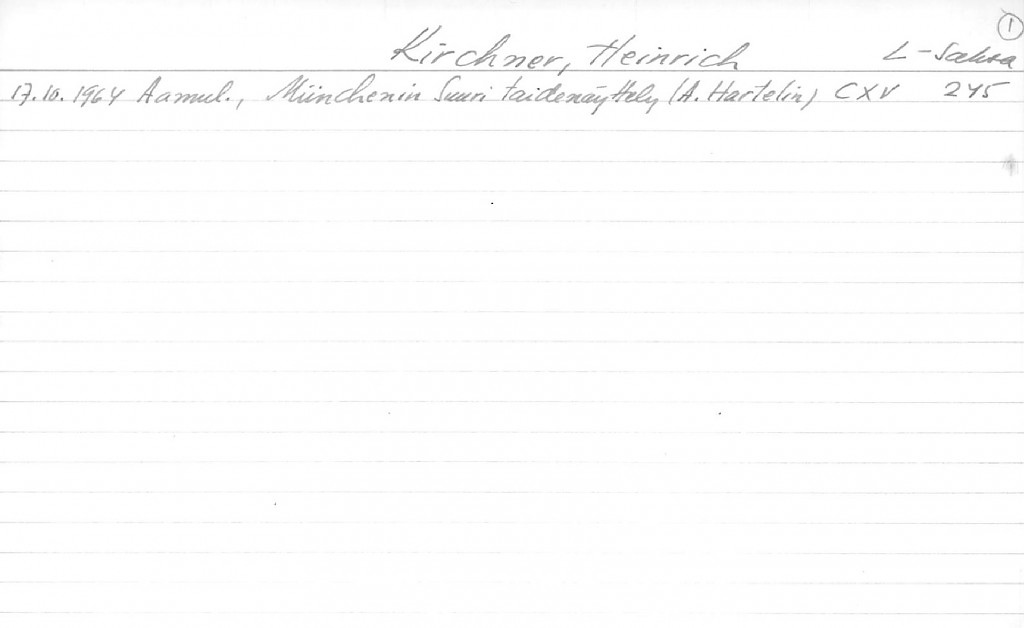 1
Kirchner, Heinrich L-Saksa
17.10.1964 Aamul., Münchenin Suuri taidenäyttely (A. Hartelin) CXV 245